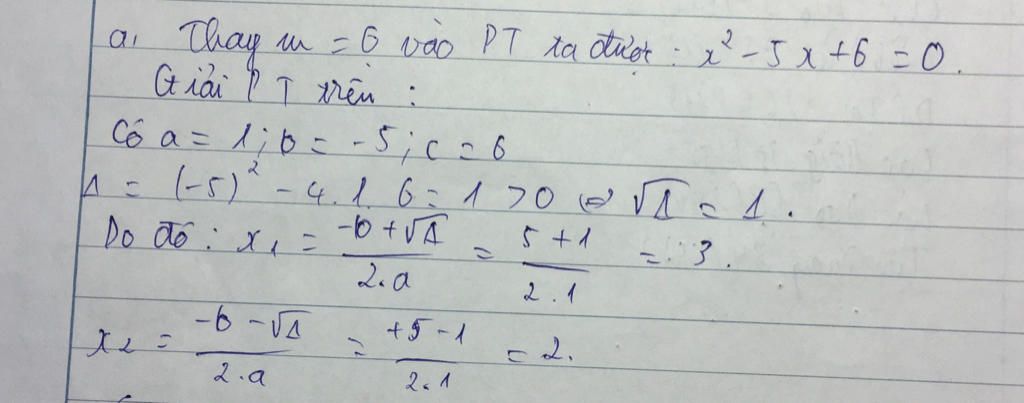 a, Thay m = 6 vào PT ta được : x² - 5x + 6 = 0.
Giải PT trên :
Có a = 1 ; b = -5 ; c = 6
Δ = (-5)² - 4.1.6 = 1 > 0 ⇔ √Δ = 1.
Do đó : x₁ = (-b + √Δ)/(2.a) = (5 + 1)/(2.1) = 3.
x₂ = (-b - √Δ)/(2.a) = (+5 - 1)/(2.1) = 2.